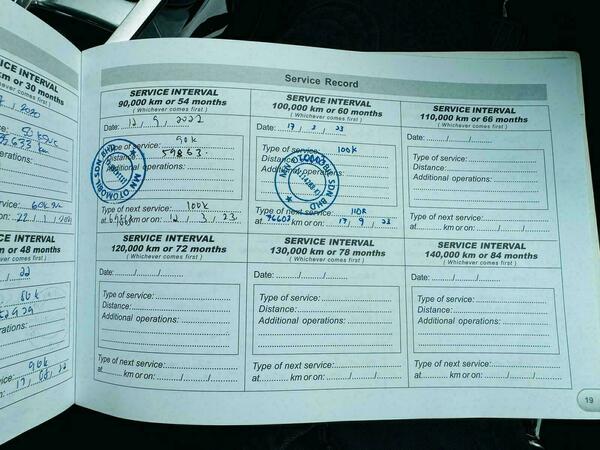 ICE INTERVAL
km or 30 months
hever comes first )
2020
erations:
ICE INTERVAL
m or 48 months
hever comes first )
22
Service Record
SERVICE INTERVAL
90,000 km or 54 months
( Whichever comes first )
Date: 12, 9, 2022
Type of service: 90k
Distance: 59863
Additional operations:
MN OTOMOBIL SDN BHD
Type of next service: 100k
at km or on: 12 / 3 / 23
SERVICE INTERVAL
100,000 km or 60 months
( Whichever comes first )
Date: 17 / 3 / 23
Type of service: 100k
Distance:
Additional operations:
SDN BHD
Type of next service: 110k
at km or on: 17 / 9 / 23
SERVICE INTERVAL
110,000 km or 66 months
( Whichever comes first )
Date: / /
Type of service:
Distance:
Additional operations:
Type of next service:
at km or on: / /
SERVICE INTERVAL
120,000 km or 72 months
( Whichever comes first )
Date: / /
Type of service:
Distance:
Additional operations:
Type of next service:
at km or on: / /
SERVICE INTERVAL
130,000 km or 78 months
( Whichever comes first )
Date: / /
Type of service:
Distance:
Additional operations:
Type of next service:
at km or on: / /
SERVICE INTERVAL
140,000 km or 84 months
( Whichever comes first )
Date: / /
Type of service:
Distance:
Additional operations:
Type of next service:
at km or on: / /
19